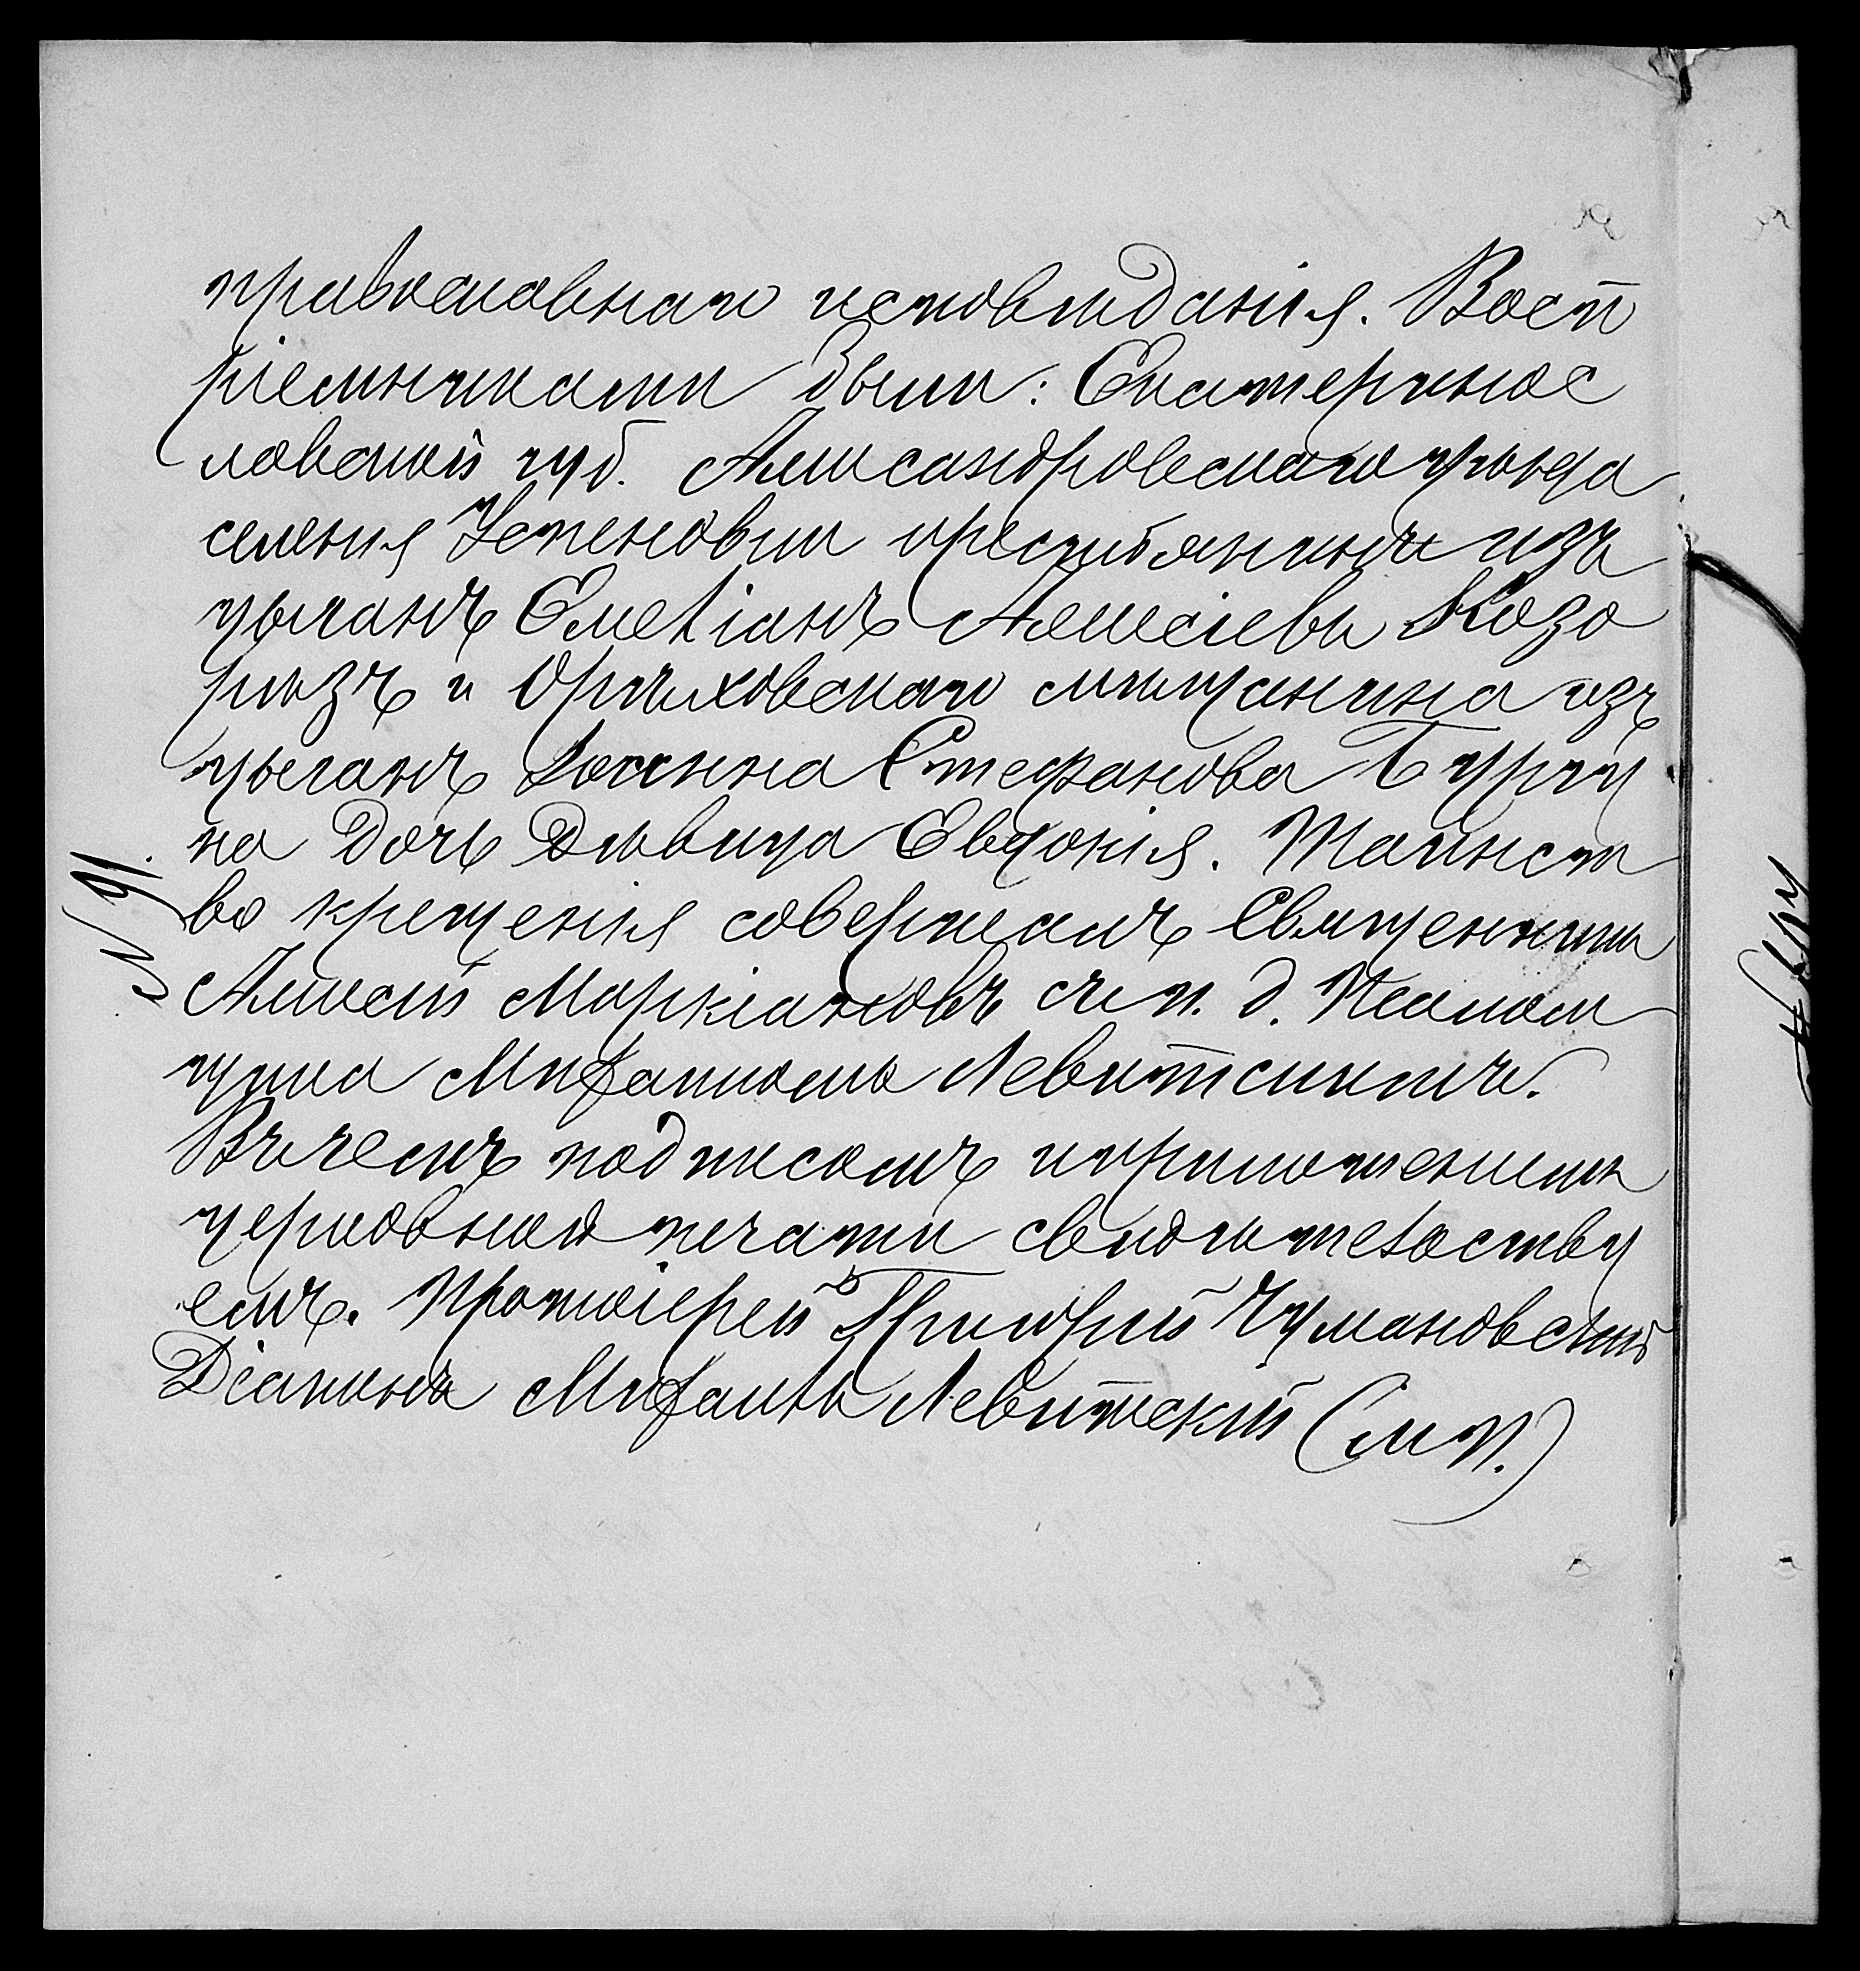 православнаго исповѣданія. Восп
ріемниками были: Екатеринос
лавской губ. Александровскаго уѣзда
селенія Успеновки крестьянинъ изъ
цыганъ Емеліанъ Алексіевъ Козо
рѣзъ и Орѣховскаго мѣщанина изъ
цыганъ Іоанна Стефанова Бурлу
на дочь дѣвица Евдокія. Таинст
во крещенія совершалъ Священникъ
Алексій Маркіановъ съ и. д. Псалом
щика Митфаниломъ Левитскимъ.
Въ чемъ подписомъ и приложеніемъ
церковной печати свидѣтельству
емъ. Протоіерей Григорій Чумановскій
Діаконъ Левитскій (М. П.)
N 91.